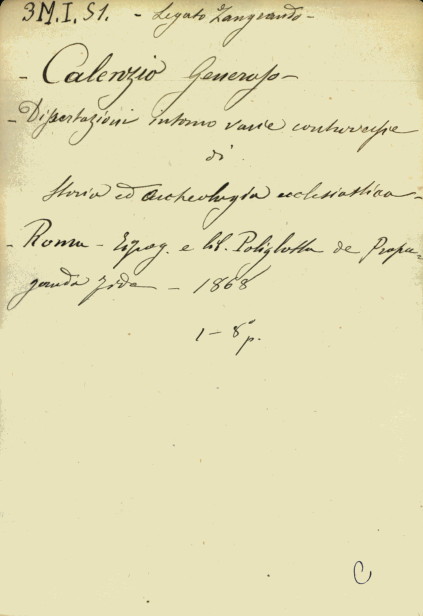 3M.I.51. - Legato Zangrando -
- Calenzio Generoso -
- Dissertazioni intorno varie controversie
di
Storia ed archeologia ecclesiastica -
- Roma - Tipog. e lib. Poliglotta de Propa-
ganda Fide - 1868
1 - 8° p.
C